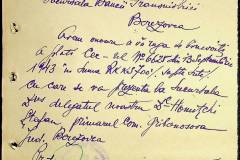 Sucursala Băncii Transnistriei
Berezovca
Avem onoarea a vă ruga să binevoiți
a plati Cec-ul No 6625 din Septembrie
1943 în suma RKKS 700/ șapte sute/
cu care se va prezenta la Sucursala
Dvs delegatul nostru Dl
Ștefan primarul Com.
jud. Berezovca